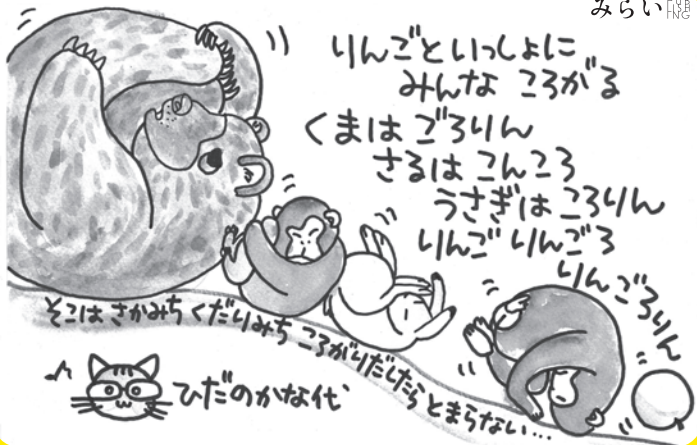 みらい PUB LISH ING
りんごといっしょに
みんな ころがる
くまは ごろりん
さるは こんころ
うさぎは ころりん
りんご りんごろ
りんごろりん
そこは さかみち くだりみち ころがりだしたら とまらない…
ひだのかな代